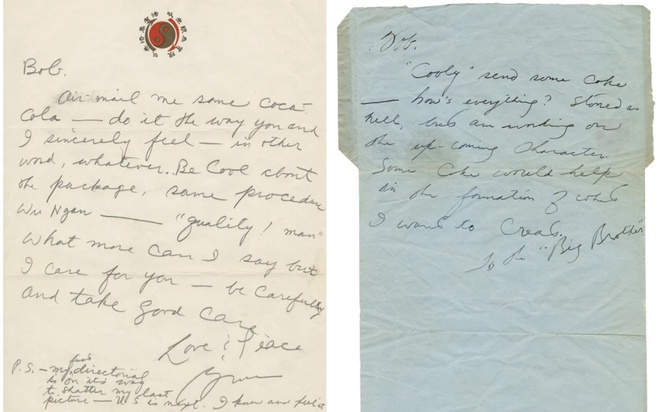 Bob.
Air-mail me some Coca-
Cola — do it the way you and
I sincerely feel — in other
word, whatever.. Be Cool about
the package, same procedure
Wu Ngan — "quality! man"
What more can I say but
I care for you — be Carefully
and take good Care
Love & Peace
P.S. — my directorial
is on its way
to shatter my last
picture — U.S. is next. I know and feel it
Bob.
"Cooly" send some Coke
— how's everything? Stoned as
hell, but am working on
the up-coming character.
Some Coke would help
in the formation of what
I want to Create.
"Big Brother"